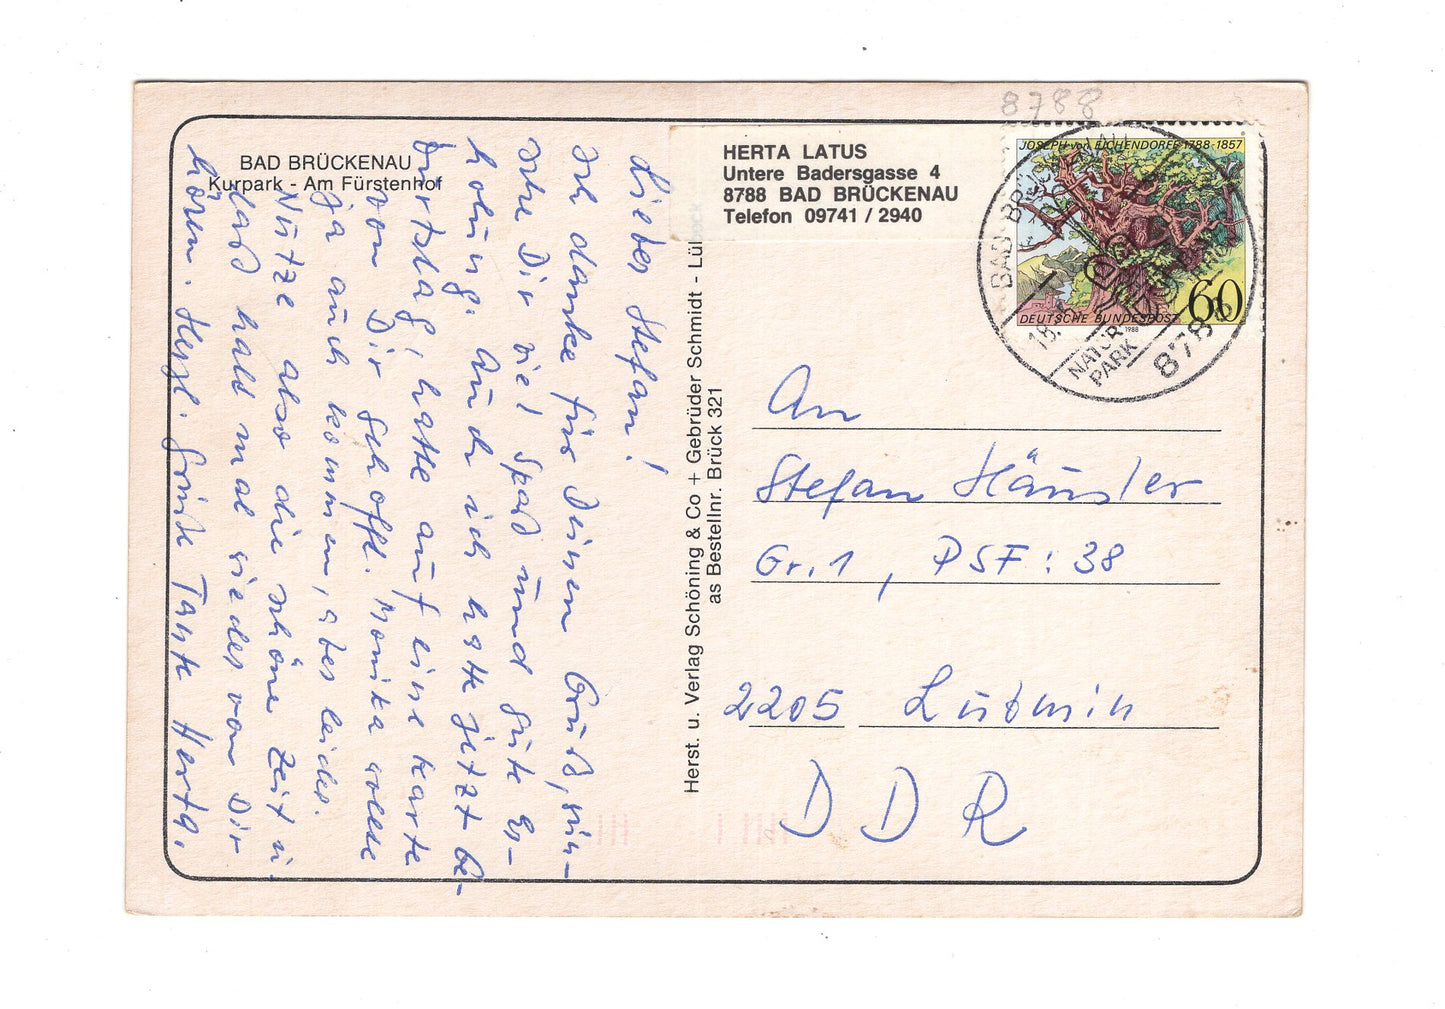 8788
BAD BRÜCKENAU
Kurpark - Am Fürstenhof
HERTA LATUS
Untere Badersgasse 4
8788 BAD BRÜCKENAU
Telefon 09741 / 2940
JOSEPH von EICHENDORFF 1788-1857
DEUTSCHE BUNDESPOST
60
1988
BAD BRÜCKENAU
18.
NATUR
PARK
878
Lieber Stefan!
Ich danke für Deinen Gruß, wün-
sche Dir viel Spaß und gute Er-
holung. Auch ich hatte jetzt Ge-
burtstag, hatte auf eine Karte
von Dir gehofft. Monika sollte
ja auch kommen, aber leider.
Nütze also die schöne Zeit u.
laß bald mal wieder von Dir
hören. Herzl. Grüße Tante Herta.
Herst. u. Verlag Schöning & Co + Gebrüder Schmidt - Lü
as Bestellnr. Brück 321
An
Stefan Häusler
Gr. 1, PSF: 38
2205 Lubmin
DDR